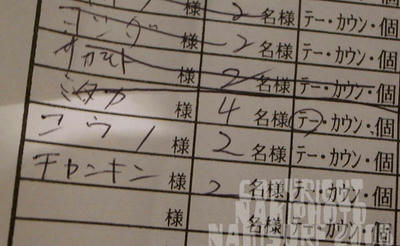 2名様 テー・カウン・個
ホンダ 様 2名様 テー・カウン・個
様 2名様 テー・カウン・個
ミタカ 様 4名様 テー・カウン・個
コウノ 様 2名様 テー・カウン・個
チャンキン 様 2名様 テー・カウン・個
様 名様 テー・カウン・個
COPYRIGHT